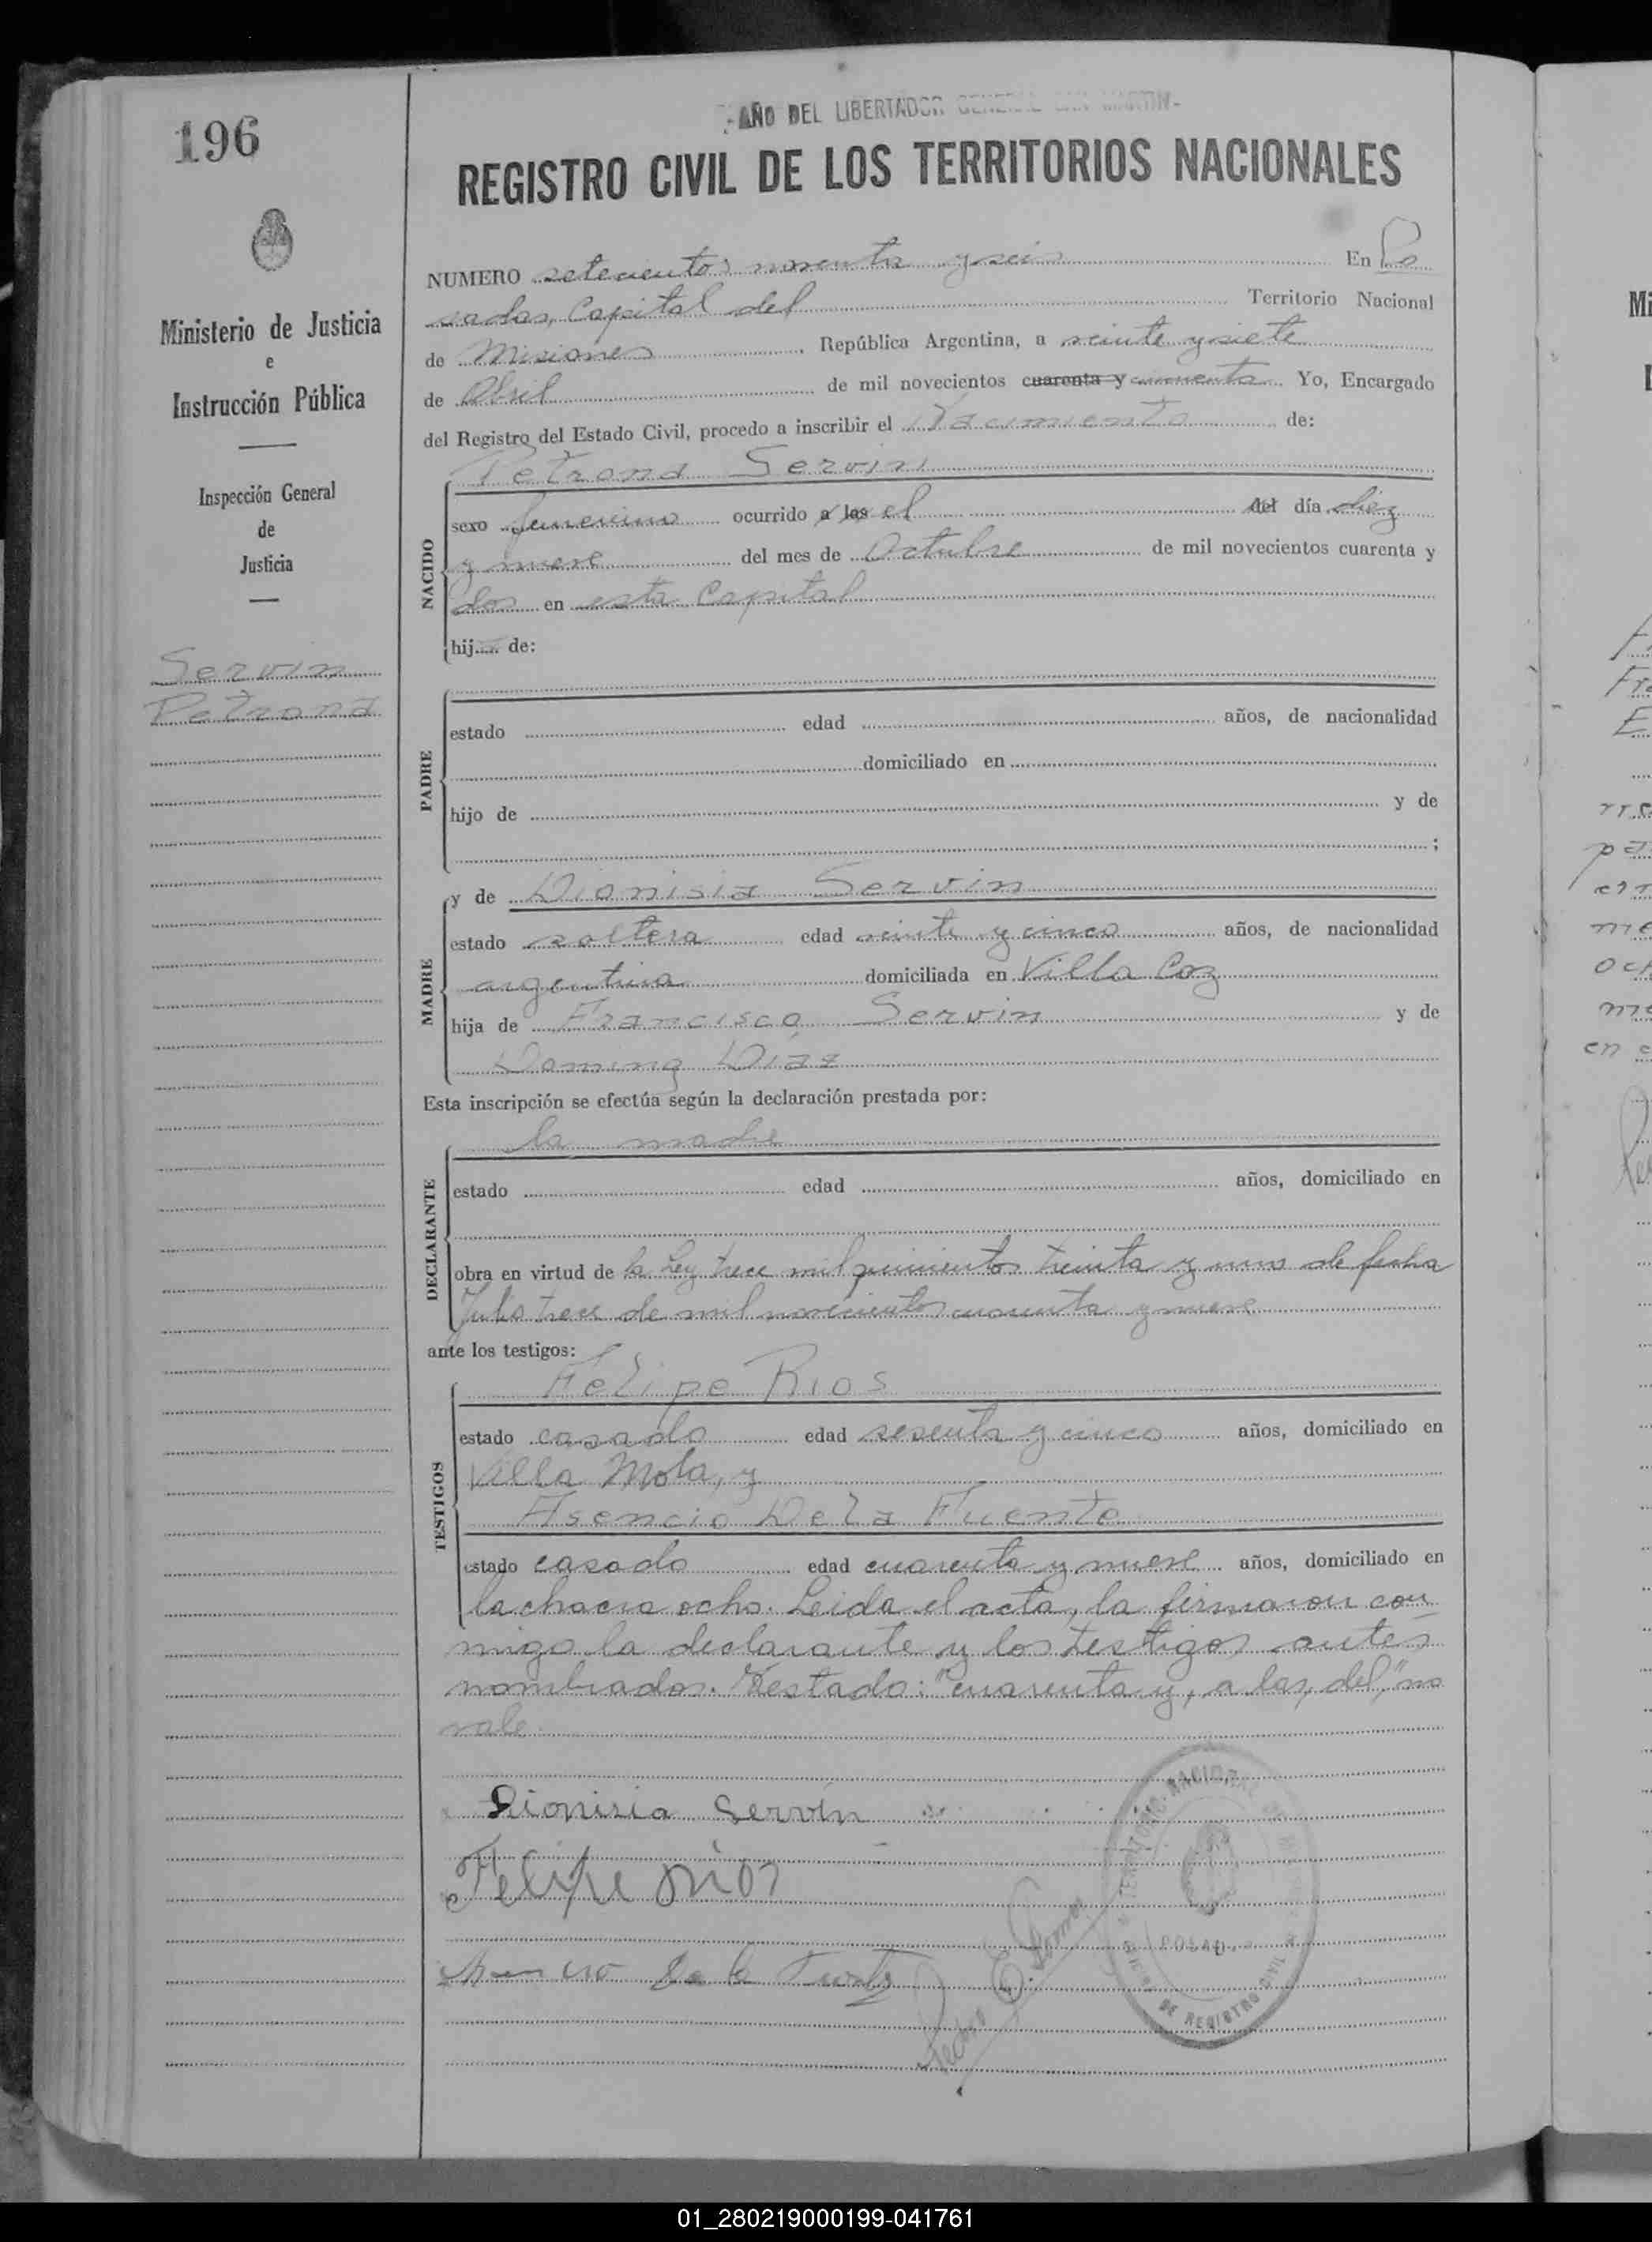 AÑO DEL LIBERTADOR GENERAL SAN MARTIN
196
REGISTRO CIVIL DE LOS TERRITORIOS NACIONALES
Ministerio de Justicia
e
Instrucción Pública
Inspección General
de
Justicia
Servin
Petrona
NUMERO setecientos noventa y seis En Po
sadas, Capital del Territorio Nacional
de Misiones, República Argentina, a veinte y siete
de Abril de mil novecientos cuarenta y cincuenta Yo, Encargado
del Registro del Estado Civil, procedo a inscribir el Nacimiento de:
Petrona Servin
NACIDO
sexo femenino ocurrido a las el del día diez
y nueve del mes de Octubre de mil novecientos cuarenta y
dos en esta Capital
hij de:
PADRE
estado edad años, de nacionalidad
domiciliado en
hijo de y de
;
y de Dionisia Servin
MADRE
estado soltera edad veinte y cinco años, de nacionalidad
argentina domiciliada en Villa Coz
hija de Francisco Servin y de
Doming Diaz
Esta inscripción se efectúa según la declaración prestada por:
la madre
DECLARANTE
estado edad años, domiciliado en
obra en virtud de la Ley trece mil quinientos treinta y uno de fecha
Julio trece de mil novecientos cuarenta y nueve
ante los testigos:
Felipe Rios
TESTIGOS
estado casado edad sesenta y cinco años, domiciliado en
Villa Mola, y
Asencio De la Fuente
estado casado edad cuarenta y nueve años, domiciliado en
la chacra ocho. Leida el acta, la firmaron con
migo la declarante y los testigos antes
nombrados. Testado: "cuarenta y, a las, del," no
vale.
Dionisia Servin
Felipe Rios
De la Fuente
Pedro E. Gomez
TERRITORIO NACIONAL DE
POSADAS
DE REGISTRO CIVIL
01_280219000199-041761